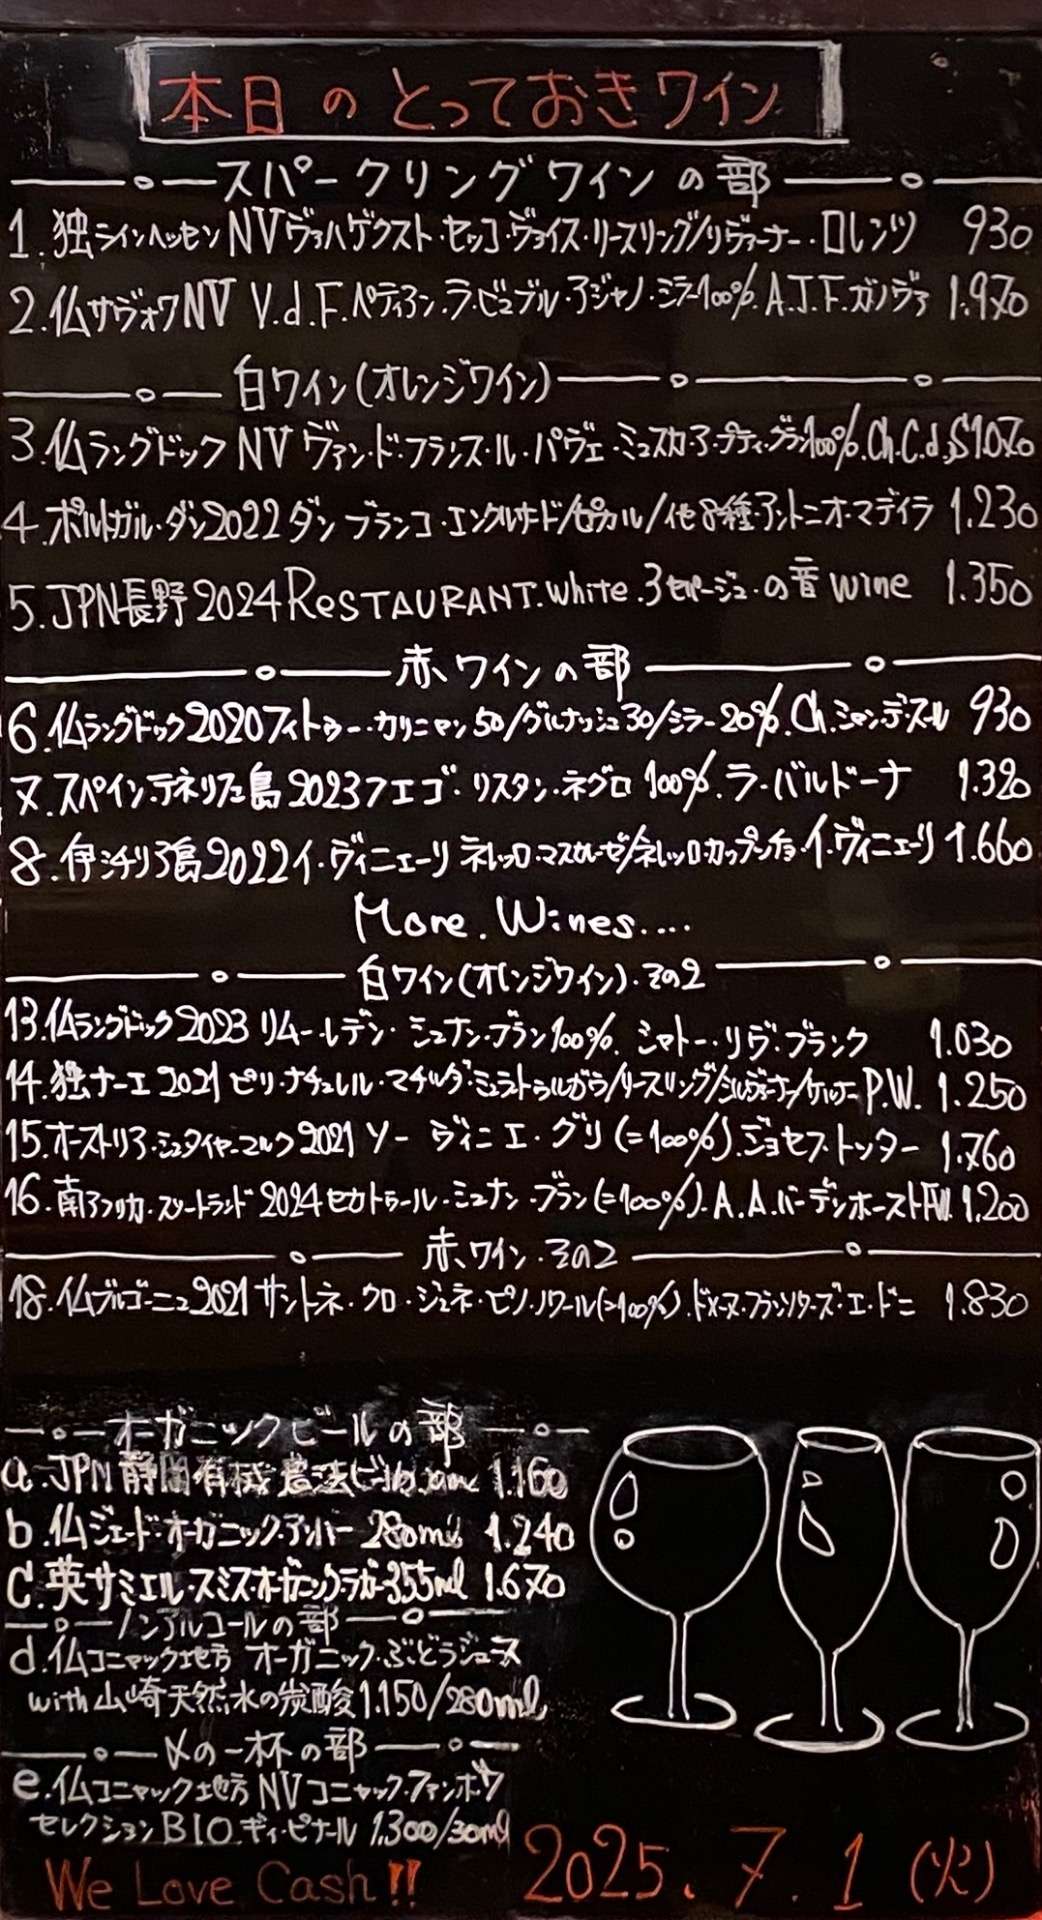 本日のとっておきワイン
スパークリングワインの部
1.独ラインヘッセンNVヴァハゲクスト・セッコ・ヴァイス・リースリング/シルヴァーナー・ロレンツ 930
2.仏サヴォワNV V.d.F.ペティアン.ラ.ビュブル・アジャノ・ミラー100%.A.J.F.ガノヴァ 1.970
白ワイン(オレンジワイン)
3.仏ラングドックNV ヴァン・ド・フランス・ル・パヴェ・ミュスカ・ア・プティ・グラン100%.Ch.C.d.S 1.070
4.ポルトガル・ダン2022ダン ブランコ・エンクルサード/ビカル/他8種・アントニオ・マデイラ 1.230
5.JPN長野2024RESTAURANT.White.3セパージュ・の音wine 1.350
赤ワインの部
6.仏ラングドック2020フィトゥー・カリニャン50/グルナッシュ30/シラー20%.Ch.シャンデスール 930
7.スペイン.テネリフェ島2023フエゴ・リスタン・ネグロ100%.ラ・バルドーナ 1.320
8.伊シチリア島2022イ・ヴィニェーリ ネレッロ・マスカレーゼ/ネレッロ・カップッチョ イ・ヴィニェーリ 1.660
More.Wines....
白ワイン(オレンジワイン)・その2
13.仏ラングドック2023リムー・レデン・シュナン・ブラン100%.シャトー・リヴ・ブランク 1.030
14.独ナーエ2021ピリ・ナチュレル・マチルダ・ミュラトゥルガウ/リースリング/シルヴァーナー/ケルナー P.W. 1.250
15.オーストリア・シュタイヤーマルク2021ソー ヴィニエ・グリ(=100%).ジョセフ・トンター 1.760
16.南アフリカ・スワートランド2024セカトゥール・シュナン・ブラン(=100%).A.A.バーデンホーストF.W. 1.200
赤ワイン・その2
18.仏ブルゴーニュ2021サントネ・クロ・ジュネ・ピノ・ノワール(=100%).ドメーヌ・フランソワーズ・エ・ドニ 1.830
オーガニックビールの部
a.JPN静岡有機農法ビール 1.160
b.仏ジェード・オーガニック・アンバー 280ml 1.240
C.英サミエル・スミス・オーガニック・ラガー355ml 1.670
ノンアルコールの部
d.仏コニャック地方 オーガニック・ぶどうジュース
with山崎天然水の炭酸1.150/280ml
〆の一杯の部
e.仏コニャック地方NVコニャック・ファンボワ
セレクションBIO.ギィ・ピナール 1.300/30ml
We Love Cash!!
2025.7.1(火)